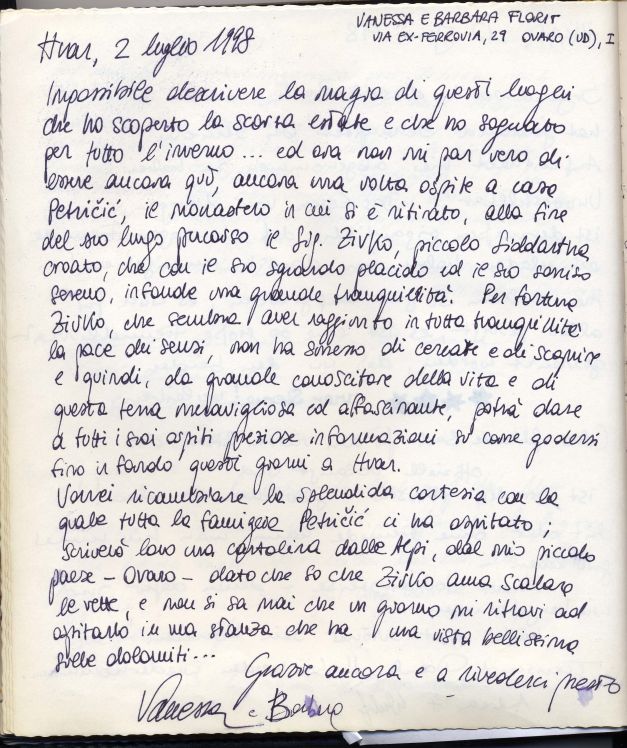 VANESSA E BARBARA FLORIT
VIA EX-FERROVIA, 29 OVARO (UD), I
Hvar, 2 luglio 1998
Impossibile descrivere la magia di questi luoghi
che ho scoperto la scorsa estate e che ho sognato
per tutto l'inverno... ed ora non mi par vero di
essere ancora quì, ancora una volta ospite a casa
Petričić, il monastero in cui si è ritirato, alla fine
del suo lungo percorso il Sig. Zivko, piccolo Siddartha
croato, che con il suo sguardo placido ed il suo sorriso
sereno, infonde una grande tranquillità. Per fortuna
Zivko, che sembra aver raggiunto in tutta tranquillità
la pace dei sensi, non ha smesso di cercare e di scoprire
e quindi, da grande conoscitore della vita e di
questa terra meravigliosa ed affascinante, potrà dare
a tutti i suoi ospiti preziose informazioni su come godersi
fino in fondo questi giorni a Hvar.
Vorrei ricambiare la splendida cortesia con la
quale tutta la famiglia Petričić ci ha ospitato;
scriverò loro una cartolina dalle Alpi, dal mio piccolo
paese - Ovaro - dato che so che Zivko ama scalare
le vette, e non si sa mai che un giorno mi ritrovi ad
ospitarlo in una stanza che ha una vista bellissima
sulle dolomiti...
Grazie ancora e a rivederci presto
Vanessa e Barbara